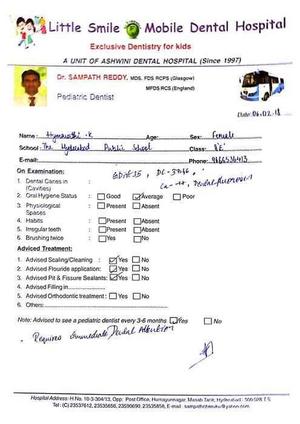 Little Smile Mobile Dental Hospital
Exclusive Dentistry for kids
A UNIT OF ASHWINI DENTAL HOSPITAL (Since 1997)
Dr. SAMPATH REDDY, MDS, FDS RCPS (Glasgow)
MFDS RCS (England)
Pediatric Dentist
Date: 06.02.18
Name: .K Age: Sex: Female
School: The Hyderabad Public School Class:
E-mail: Phone:
On Examination:
1. Dental Caries in (Cavities) :
2. Oral Hygiene Status : Good Average Poor
3. Physiological Spaces : Present Absent
4. Habits : Present Absent
5. Irregular teeth : Present Absent
6. Brushing twice : Yes No
Adviced Treatment:
1. Advised Scaling/Cleaning : Yes No
2. Advised Flouride application : Yes No
3. Advised Pit & Fissure Sealants : Yes No
4. Advised Filling in
5. Advised Orthodontic treatment : Yes No
6. Others:
Note: Advised to see a pediatric dentist every 3-6 months Yes No
Requires Immediate Dental Attention
Hospital Address: H.No. 10-3-304/13, Opp: Post Office, Humayunnagar, Masab Tank, Hyderabad